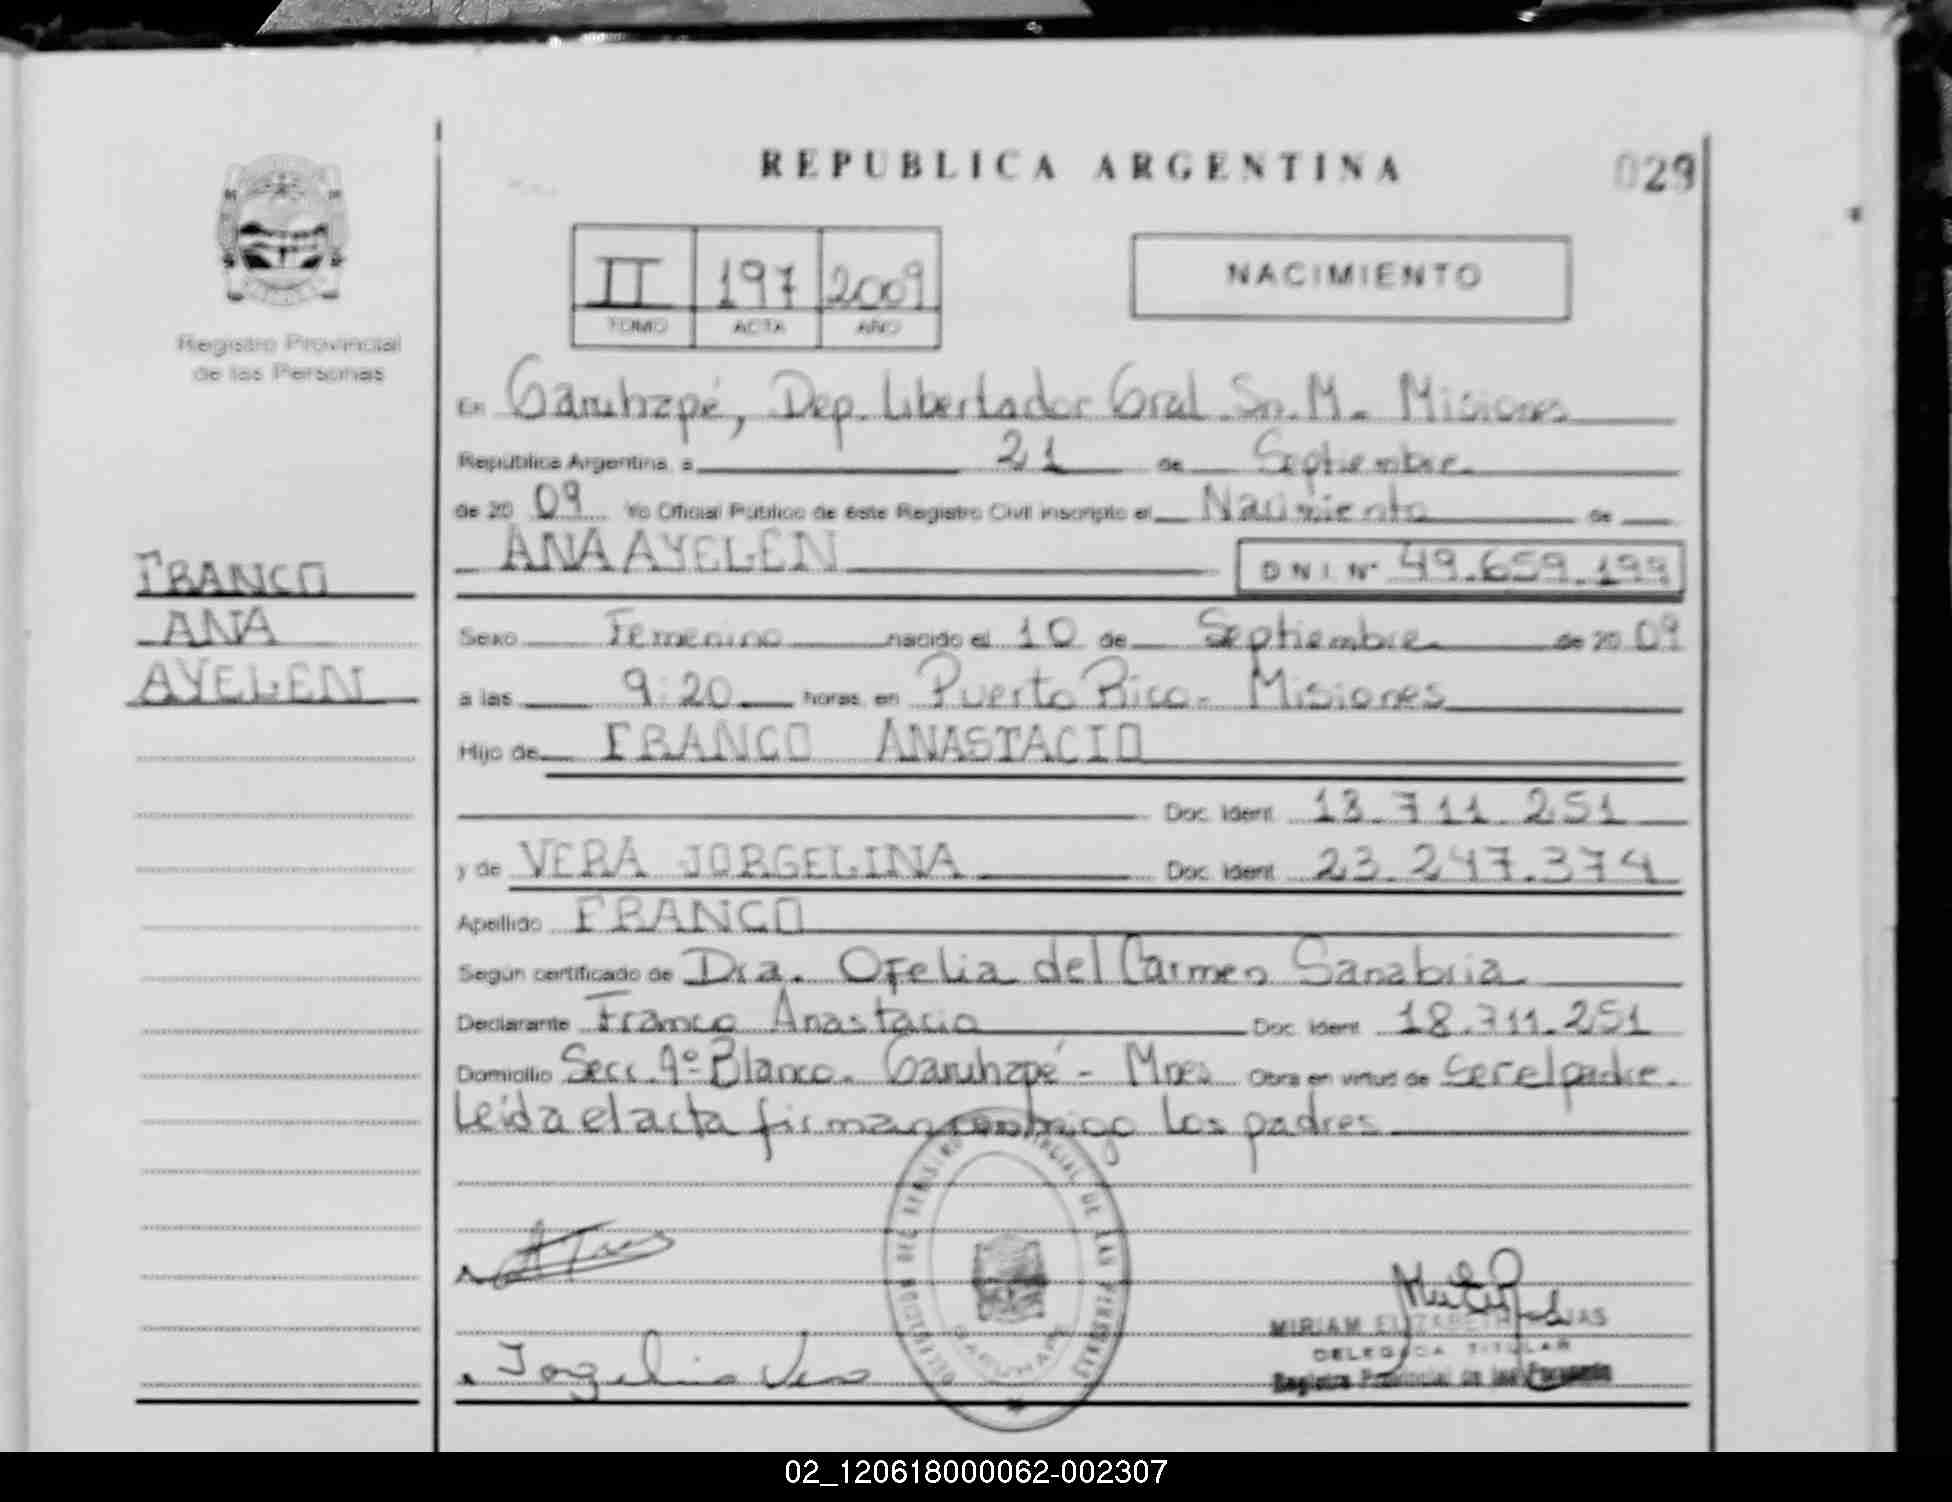 REPUBLICA ARGENTINA
029
Registro Provincial
de las Personas
II 197 2009
TOMO ACTA AÑO
NACIMIENTO
En Garuhapé, Dep. Libertador Gral. Sn. M. Misiones
República Argentina, a 21 de Septiembre
de 20 09 Yo Oficial Público de éste Registro Civil inscripto el Nacimiento de
ANA AYELEN
D N I. Nº 49.659.199
FRANCO
ANA
AYELEN
Sexo Femenino nacido el 10 de Septiembre de 20 09
a las 9:20 horas, en Puerto Rico- Misiones
Hijo de FRANCO ANASTACIO
Doc. Ident. 18.711.251
y de VERA JORGELINA Doc. Ident. 23.247.374
Apellido FRANCO
Según certificado de Dra. Ofelia del Carmen Sanabria
Declarante Franco Anastacio Doc. Ident. 18.711.251
Domicilio Secc. 9º Blanco. Garuhapé - Mnes Obra en virtud de ser el padre.
Leída el acta firman conmigo los padres
DELEGACION DEL REGISTRO PROVINCIAL DE LAS PERSONAS
GARUHAPE
Jorgelina Vera
MIRIAM ELIZABETH
DELEGADA TITULAR
Registro Provincial de las Personas
02_120618000062-002307